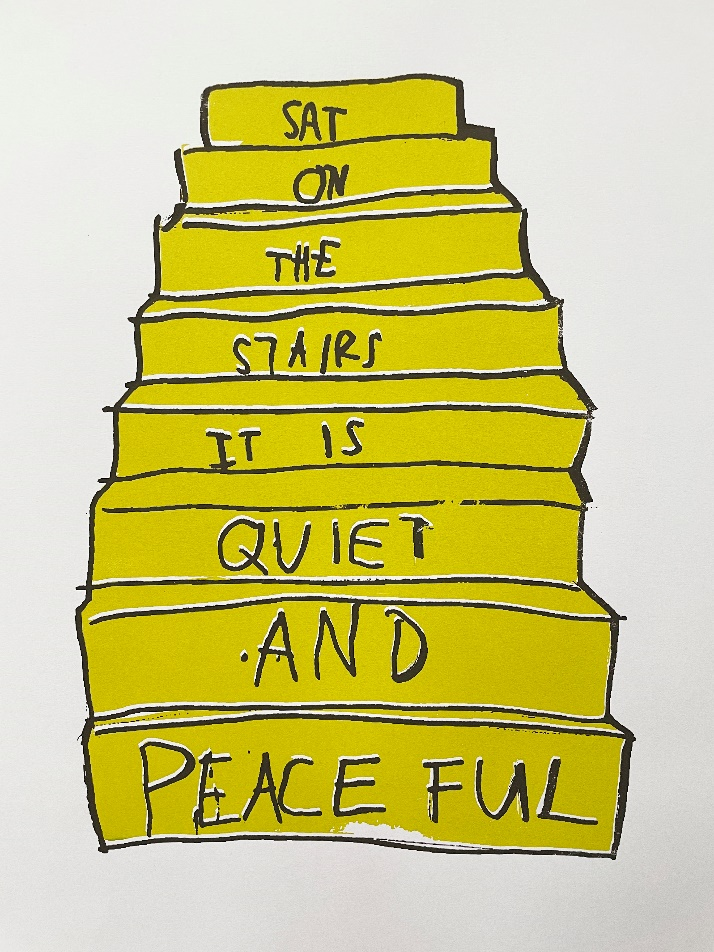 SAT
ON
THE
STAIRS
IT IS
QUIET
AND
PEACE FUL